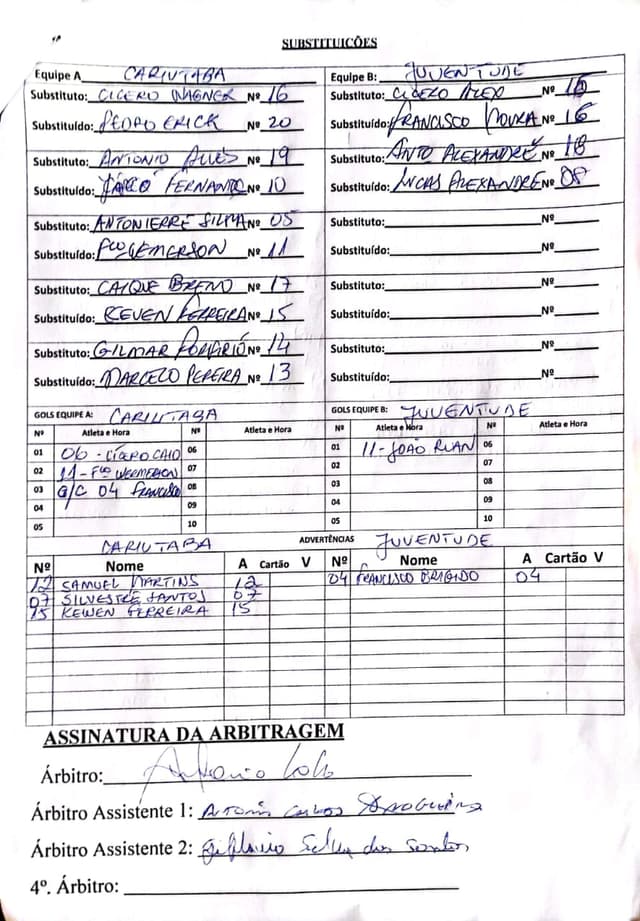 SUBSTITUICÕES
Equipe A CARIUTABA Equipe B: JUVENTUDE
Substituto: CICERO WAGNER Nº 16 Substituto: CICERO ALEX Nº 15
Substituído: PEDRO ERICK Nº 20 Substituído: FRANCISCO MOURA Nº 16
Substituto: ANTONIO ALVES Nº 19 Substituto: ANTO ALEXANDRE Nº 18
Substituído: FERNANDO Nº 10 Substituído: LUCAS ALEXANDRE Nº 08
Substituto: ANTONIERRE SILMA Nº 05 Substituto: Nº
Substituído: Fco WEMERSON Nº 11 Substituído: Nº
Substituto: CAIQUE BRENO Nº 17 Substituto: Nº
Substituído: KEVEN FERREIRA Nº 15 Substituído: Nº
Substituto: GILMAR PORFIRIO Nº 14 Substituto: Nº
Substituído: MARCELO PEREIRA Nº 13 Substituído: Nº
GOLS EQUIPE A: CARIUTABA GOLS EQUIPE B: JUVENTUDE
Nº Atleta e Hora Nº Atleta e Hora Nº Atleta e Hora Nº Atleta e Hora
01 06 - CÍCERO CAIO 06 01 11-JOÃO RUAN 06
02 11 - Fco WERMERSON 07 02 07
03 G/C 04 FRANCISCO 08 03 08
04 09 04 09
05 10 05 10
CARIUTABA ADVERTÊNCIAS JUVENTUDE
Nº Nome A Cartão V Nº Nome A Cartão V
12 SAMUEL MARTINS 12 04 FRANCISCO BRIGIDO 04
07 SILVESTRE SANTOS 07
15 KEWEN FERREIRA 15
ASSINATURA DA ARBITRAGEM
Árbitro: Antonio
Árbitro Assistente 1: Antonio Carlos
Árbitro Assistente 2: dos Santos
4º. Árbitro: